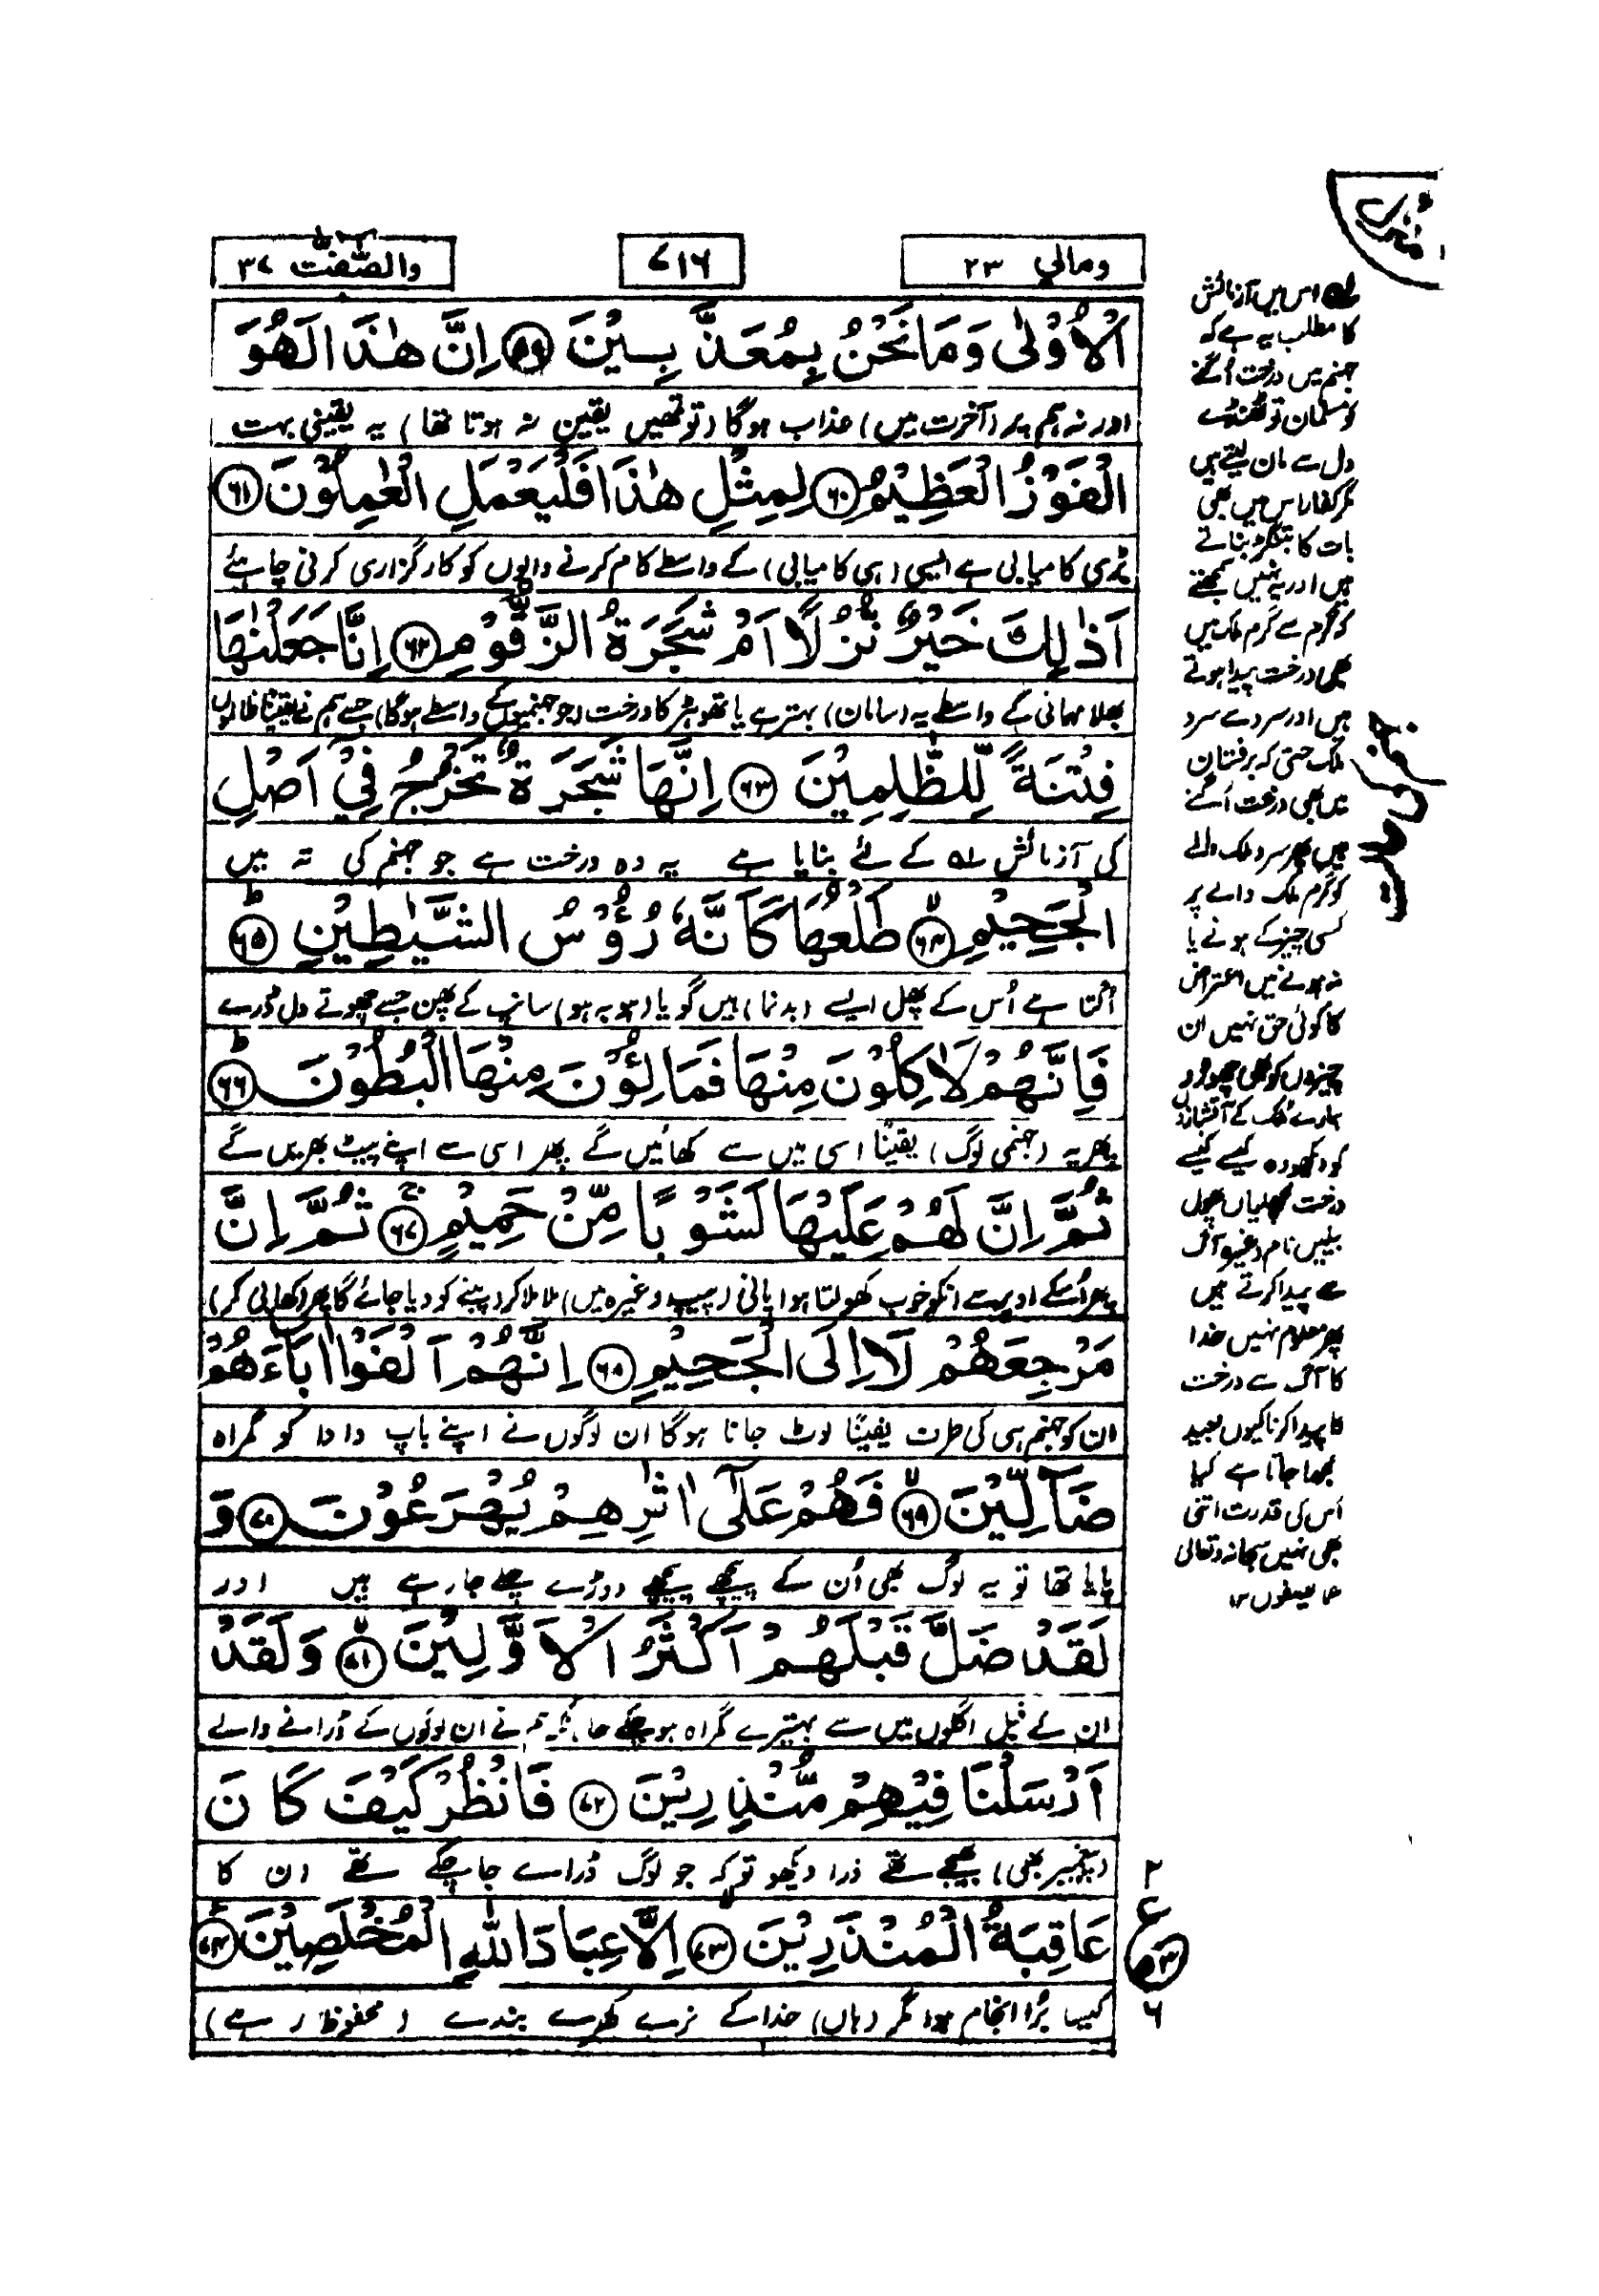 ومالي ٢٣
٧١٦
والصّٰفّٰت ٣٧
الْاُوْلٰى وَمَا نَحْنُ بِمُعَذَّبِيْنَ ﴿۵۹﴾ اِنَّ هٰذَا لَهُوَ
اور نہ ہم پر (آخرت میں) عذاب ہوگا (تو تمھیں یقین نہ ہوتا تھا) یہ یقینی بہت
الْفَوْزُ الْعَظِيْمُ ﴿۶۰﴾ لِمِثْلِ هٰذَا فَلْيَعْمَلِ الْعٰمِلُوْنَ ﴿۶۱﴾
بڑی کامیابی ہے ایسی (ہی کامیابی) کے واسطے کام کرنے والوں کو کارگزاری کرنی چاہئے
اَذٰلِكَ خَيْرٌ نُّزُلًا اَمْ شَجَرَةُ الزَّقُّوْمِ ﴿۶۲﴾ اِنَّا جَعَلْنٰهَا
بھلا مہمانی کے واسطے یہ (سامان) بہتر ہے یا تھوہڑ کا درخت (جو جہنمیوں کے واسطے ہوگا) جسے ہم نے یقیناً ظالموں
فِتْنَةً لِّلظّٰلِمِيْنَ ﴿۶۳﴾ اِنَّهَا شَجَرَةٌ تَخْرُجُ فِيْٓ اَصْلِ
کی آزمائش ۱؎ کے لئے بنایا ہے یہ وہ درخت ہے جو جہنم کی تہ میں
الْجَحِيْمِ ﴿۶۴﴾ طَلْعُهَا كَاَنَّهٗ رُءُوْسُ الشَّيٰطِيْنِ ﴿۶۵﴾
اُگتا ہے اُس کے پھل ایسے (بدنما) ہیں گویا (ہوبہو) سانپ کے پھن جسے چھوتے دل ڈرے
فَاِنَّهُمْ لَاٰكِلُوْنَ مِنْهَا فَمَالِـُٔوْنَ مِنْهَا الْبُطُوْنَ ﴿۶۶﴾
پھر یہ (جہنمی لوگ) یقیناً اسی میں سے کھائیں گے پھر اسی سے اپنے پیٹ بھریں گے
ثُمَّ اِنَّ لَهُمْ عَلَيْهَا لَشَوْبًا مِّنْ حَمِيْمٍ ﴿۶۷﴾ ثُمَّ اِنَّ
پھر اُسکے اوپر سے انکو خوب کھولتا ہوا پانی (پیپ وغیرہ میں) ملا ملا کر پینے کو دیا جائے گا پھر (کھا پی کر)
مَرْجِعَهُمْ لَا۟اِلَى الْجَحِيْمِ ﴿۶۸﴾ اِنَّهُمْ اَلْفَوْا اٰبَآءَهُمْ
ان کو جہنم ہی کی طرف یقیناً لوٹ جانا ہوگا ان لوگوں نے اپنے باپ دادا کو گمراہ
ضَآلِّيْنَ ﴿۶۹﴾ فَهُمْ عَلٰٓى اٰثٰرِهِمْ يُهْرَعُوْنَ ﴿۷۰﴾ وَ
پایا تھا تو یہ لوگ بھی اُن کے پیچھے پیچھے دوڑے چلے جارہے ہیں اور
لَقَدْ ضَلَّ قَبْلَهُمْ اَكْثَرُ الْاَوَّلِيْنَ ﴿۷۱﴾ وَلَقَدْ
ان کے قبل اگلوں میں سے بہتیرے گمراہ ہوچکے حالانکہ ہم نے ان لوگوں کے ڈرانے والے
اَرْسَلْنَا فِيْهِمْ مُّنْذِرِيْنَ ﴿۷۲﴾ فَانْظُرْ كَيْفَ كَانَ
(پیغمبر بھی) بھیجے تھے ذرا دیکھو تو کہ جو لوگ ڈرائے جاچکے تھے ان کا
عَاقِبَةُ الْمُنْذَرِيْنَ ﴿۷۳﴾ اِلَّا عِبَادَ اللّٰهِ الْمُخْلَصِيْنَ ﴿۷۴﴾
کیسا بُرا انجام ہوا مگر (ہاں) خدا کے نرے کھرے بندے (محفوظ رہے)
۱؎ اس میں آزمائش
کا مطلب یہ ہے کہ
جہنم میں درخت اُگنے
کو مسلمان تو ٹھنڈے
دل سے مان لیتے ہیں
مگر کفار اس میں بھی
بات کا بتنگڑ بناتے
ہیں اور یہ نہیں سمجھتے
کہ گرم سے گرم ملک میں
بھی درخت پیدا ہوتے
ہیں اور سرد سے سرد
ملک حتی کہ برفستان
میں بھی درخت اُگتے
ہیں پھر سرد ملک والے
کو گرم ملک والے پر
کسی چیز کے ہونے یا
نہ ہونے میں اعتراض
کا کوئی حق نہیں ان
چیزوں کو بھی چھوڑو
ہمارے ملک کے آتشبازوں
کو دیکھو وہ کیسے کیسے
درخت پھول
بیلیں نام وغیرہ آگ
سے پیدا کرتے ہیں
پھر معلوم نہیں خدا
کا آگ سے درخت
کا پیدا کرنا کیوں بعید
سمجھا جاتا ہے کیا
اُس کی قدرت اتنی
بھی نہیں سبحانہ وتعالی
عما یصفون ۱۲
٢
ع
٥٣
٦